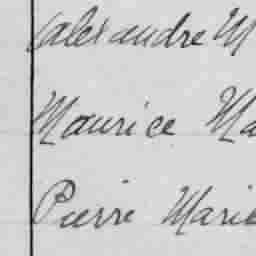 Alexandre M
Maurice Ma
Pierre Marie